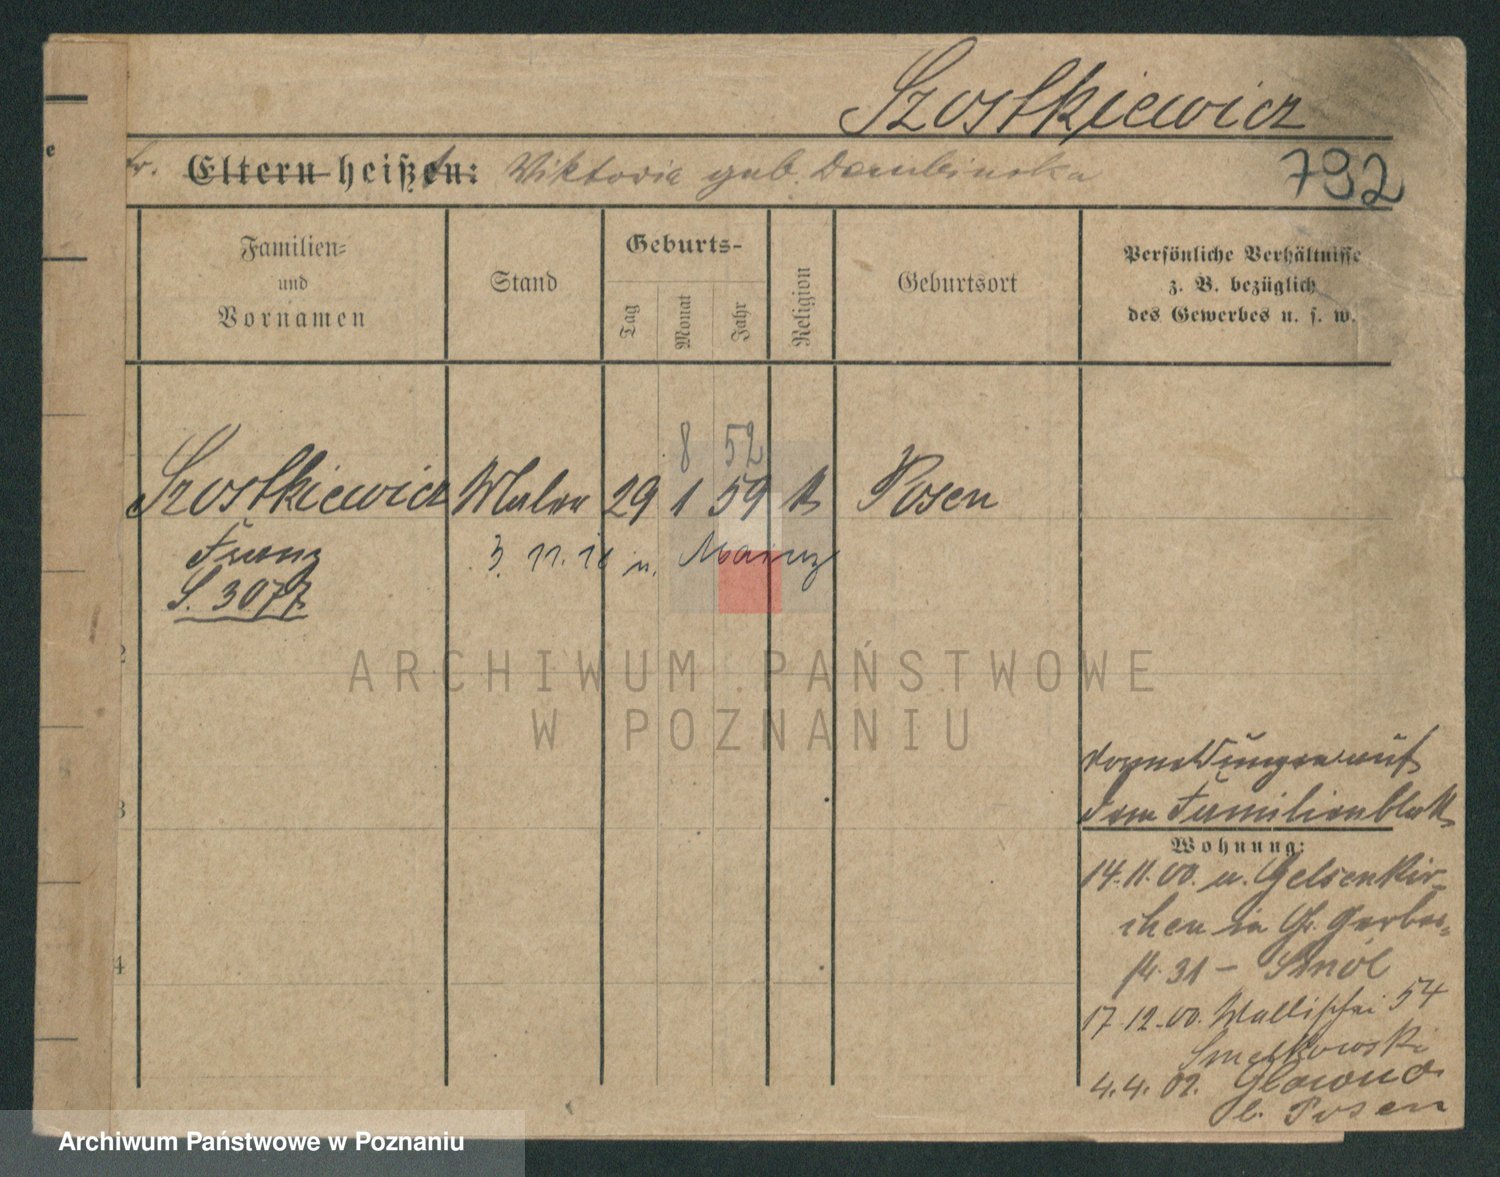 Szostkiewicz
fr. Eltern heißen: Viktoria geb. Dembinska
792
Familien-
und
Vornamen
Stand
Geburts-
Tag
Monat
Jahr
Religion
Geburtsort
Persönliche Verhältnisse
z. B. bezüglich
des Gewerbes u. s. w.
8 52
Szostkiewicz Maler 29 1 59 k Posen
Franz
3. 11. 18 n. Mainz
S. 3077
2
ARCHIWUM PAŃSTWOWE
W POZNANIU
auf
3
dem Familienblatt
Wohnung:
14.11.00. v. Gelsenkir-
chen in Gr. Gerber-
str. 31 –
4
17.12.00. Wallischei 54
Smelkowski
4.4.02. Glowno
b. Posen
Archiwum Państwowe w Poznaniu